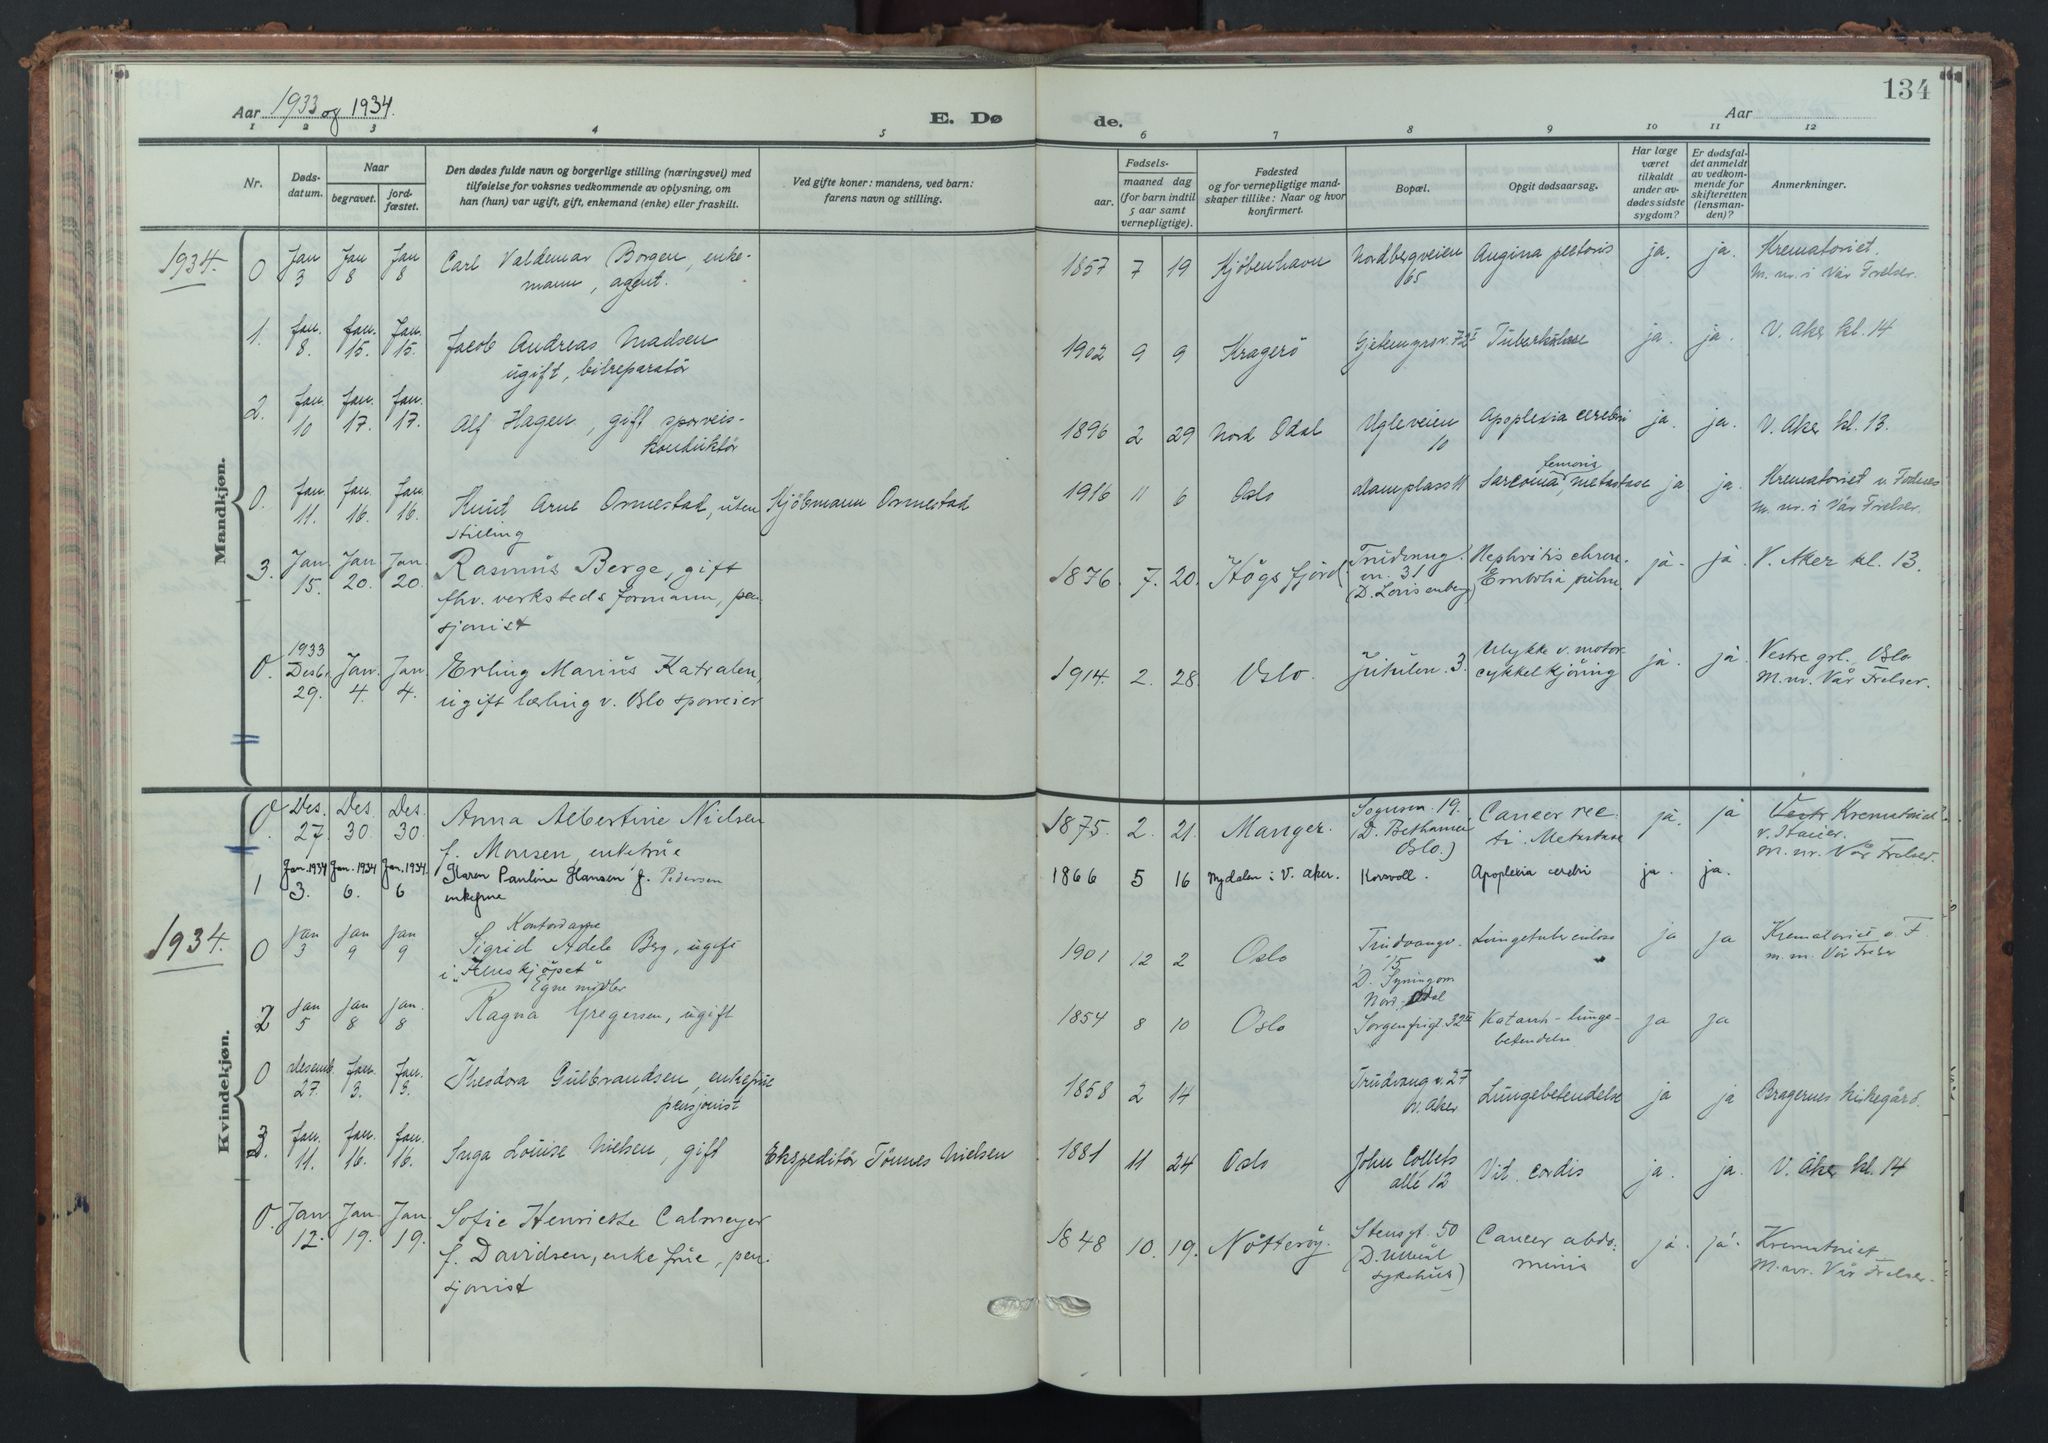 134
Aar 1933 og 1934.
E. Døde.
Aar
1 2 3 4 5 6 7 8 9 10 11 12
Nr.
Døds-
datum.
Naar
begravet.
jord-
fæstet.
Den dødes fulde navn og borgerlige stilling (næringsvei) med
tilføielse for voksnes vedkommende av oplysning, om
han (hun) var ugift, gift, enkemand (enke) eller fraskilt.
Ved gifte koner: mandens, ved barn:
farens navn og stilling.
Fødsels-
aar.
maaned dag
(for barn indtil
5 aar samt
vernepligtige).
Fødested
og for vernepligtige mand-
skaper tillike: Naar og hvor
konfirmert.
Bopæl.
Opgit dødsaarsag.
Har læge
været
tilkaldt
under av-
dødes sidste
sygdom?
Er dødsfal-
det anmeldt
av vedkom-
mende for
skifteretten
(lensman-
den)?
Anmerkninger.
Mandkjøn.
1934.
0 Jan 3 Jan 8 Jan 8 Carl Valdemar Borgen, enke-
mann, agent.
1857 7 19 Kjöbenhavn Nordbergveien 65 Angina pectoris ja. ja. Krematoriet.
M. nr. i Vår Frelser.
1. Jan. 8. Jan. 15. Jan. 15. Jacob Andreas Madsen
ugift, bilreparatör
1902 9 9 Kragerö Tuberkulose ja. ja. V. Aker kl. 14
2. Jan. 10 Jan. 17. Jan. 17. Alf Hagen, gift sporveis-
konduktör
1896 2 29 Nord Odal Ugleveien 10 Apoplexia cerebri ja. ja. V. Aker kl. 13.
0. Jan. 11. Jan. 16. Jan. 16. Knut Arne Ormestad, uten
stilling
Kjöbmann Ormestad
1916 11 6 Oslo Damplass 11 Sarcoma femoris, metastase ja ja. Krematoriet
M. nr. i Vår Frelser.
3. Jan. 15. Jan. 20. Jan. 20. Rasmus Berge, gift
fhv. verksteds formann, pen-
sjonist
1876. 7. 20. Högsfjord. 31 (D. Lovisenberg) Nephritis chron.
Embolia pulm. ja. ja. V. Aker kl. 13.
0. 1933 Desbr. 29. Jan. 4. Jan. 4. Erling Marius Katralen,
ugift lærling v. Oslo sporveier
1914. 2. 28. Oslo. Jutulvn. 3. Ulykke v. motor
cykkelkjöring ja. ja. Vestre grl., Oslo
M. nr. Vår Frelser.
Kvindekjøn.
0. Des. 27. Des. 30. Des. 30. Anna Albertine Nielsen
f. Monsen, enkefrue
1875. 2. 21. Manger. Sognsvn. 19. (D. Bethanien Oslo.) Cancer rec-
ti. Metastase ja. ja Krematoriet
M. nr. Vår Frelser.
1 Jan. 1934 3. Jan. 1934 6. Jan. 1934 6 Karen Pauline Hansen f. Pedersen
enkefrue
1866 5 16 Nydalen i V. Aker. Korsvoll. Apoplexia cerebri ja. ja.
1934.
0 Jan 3 Jan 9 Jan 9 Kontordame
Sigrid Adele Berg, ugift
1901 12 2 Oslo Trudvangv. 15 Lungetuberculose ja ja Krematoriet v. F.
m. nr. Vår Frelser
2 Jan 5 Jan 8 Jan. 8 Egne midler
Ragna Gregersen, ugift
1854 8 10 Oslo Sorgenfrigt. 32 Katarrh-lunge-
betendelse ja ja
0 Desemb. 27. Jan. 3. Jan. 3. Theodora Gulbrandsen, enkefrue
pensjonist
1858 2 14 Trudvang v. 27
V. Aker Lungebetendelse ja ja Bragernes kirkegård.
3. Jan. 11. Jan. 16. Jan. 16. Inga Louise Nielsen, gift
Ekspeditör Tönnes Nielsen
1881 11 24 Oslo John Collets
allé 12 Vit. cordis ja. ja. V. Aker kl. 14
0. Jan. 12. Jan. 19. Jan. 19. Sofie Henriette Calmeyer
f. Davidsen, enkefrue, pen-
sjonist
1848 10. 19. Nötteröy. Stensgt. 50
(D. Ullevål
sykehus) Cancer abdo-
minis ja. ja. Krematoriet
M. nr. Vår Frelser.